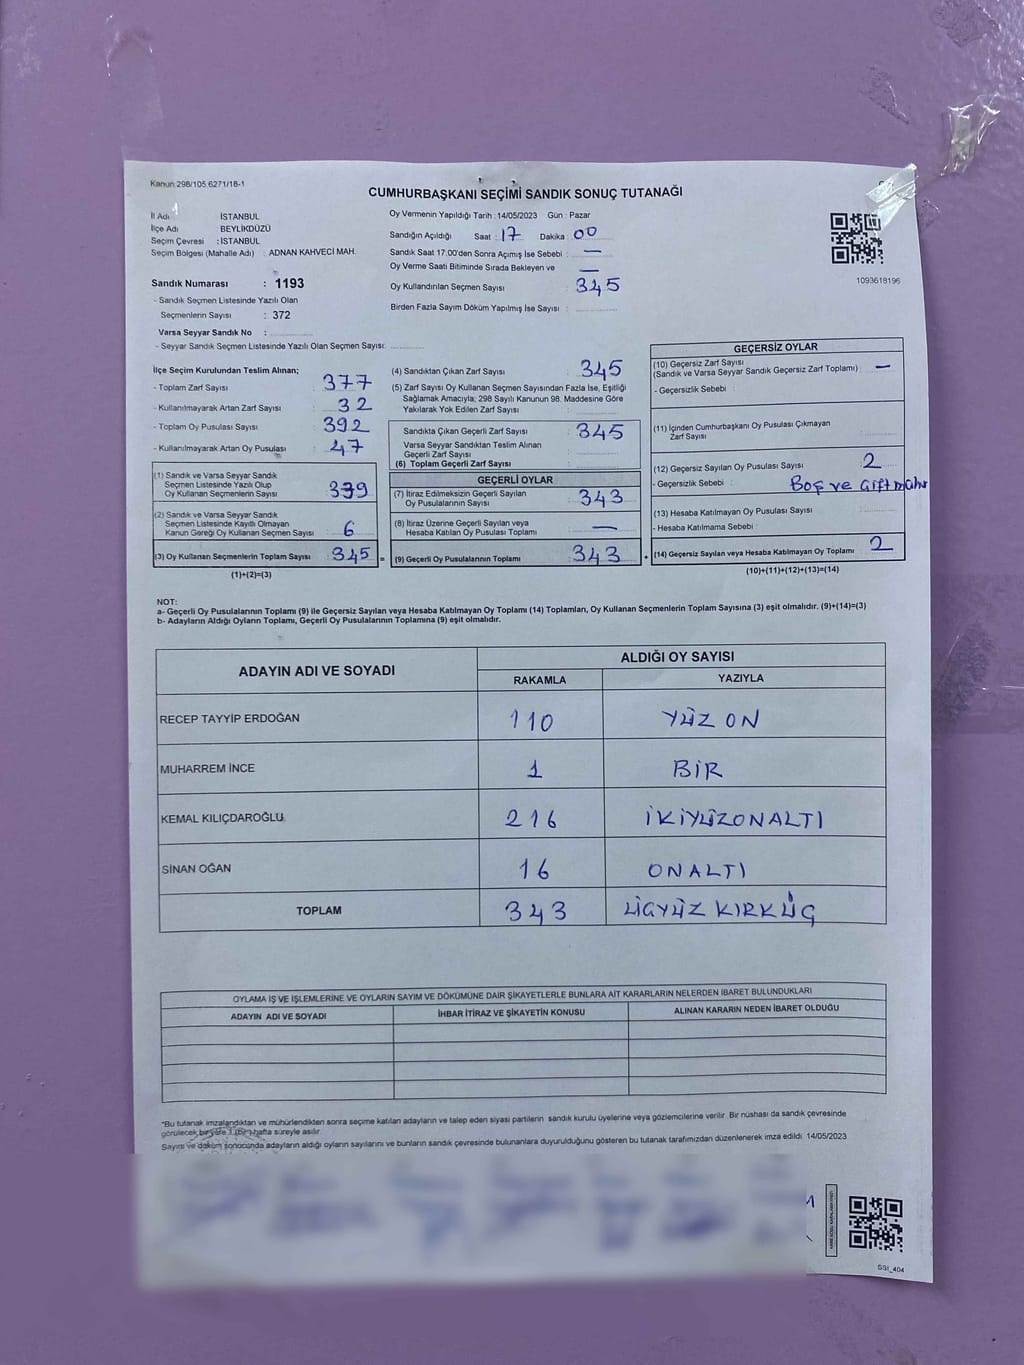 Kanun 298/105.6271/18-1
CUMHURBAŞKANI SEÇİMİ SANDIK SONUÇ TUTANAĞI
İl Adı : İSTANBUL
İlçe Adı : BEYLİKDÜZÜ
Seçim Çevresi : İSTANBUL
Seçim Bölgesi (Mahalle Adı) : ADNAN KAHVECİ MAH.
Sandık Numarası : 1193
- Sandık Seçmen Listesinde Yazılı Olan
Seçmenlerin Sayısı : 372
Varsa Seyyar Sandık No :
- Seyyar Sandık Seçmen Listesinde Yazılı Olan Seçmen Sayısı:
Oy Vermenin Yapıldığı Tarih : 14/05/2023 Gün : Pazar
Sandığın Açıldığı Saat : 17 Dakika : 00
Sandık Saat 17:00'den Sonra Açımış İse Sebebi : —
Oy Verme Saati Bitiminde Sırada Bekleyen ve —
Oy Kullandırılan Seçmen Sayısı : 345
Birden Fazla Sayım Döküm Yapılmış İse Sayısı :
1093618196
İlçe Seçim Kurulundan Teslim Alınan;
- Toplam Zarf Sayısı : 377
- Kullanılmayarak Artan Zarf Sayısı : 32
- Toplam Oy Pusulası Sayısı : 392
- Kullanılmayarak Artan Oy Pusulası : 47
(1) Sandık ve Varsa Seyyar Sandık
Seçmen Listesinde Yazılı Olup
Oy Kullanan Seçmenlerin Sayısı : 339
(2) Sandık ve Varsa Seyyar Sandık
Seçmen Listesinde Kayıtlı Olmayan
Kanun Gereği Oy Kullanan Seçmen Sayısı : 6
(3) Oy Kullanan Seçmenlerin Toplam Sayısı : 345 =
(1)+(2)=(3)
(4) Sandıktan Çıkan Zarf Sayısı : 345
(5) Zarf Sayısı Oy Kullanan Seçmen Sayısından Fazla İse, Eşitliği
Sağlamak Amacıyla; 298 Sayılı Kanunun 98. Maddesine Göre
Yakılarak Yok Edilen Zarf Sayısı :
Sandıkta Çıkan Geçerli Zarf Sayısı : 345
Varsa Seyyar Sandıktan Teslim Alınan
Geçerli Zarf Sayısı :
(6) Toplam Geçerli Zarf Sayısı :
GEÇERLİ OYLAR
(7) İtiraz Edilmeksizin Geçerli Sayılan
Oy Pusulalarının Sayısı : 343
(8) İtiraz Üzerine Geçerli Sayılan veya
Hesaba Katılan Oy Pusulası Toplamı : —
(9) Geçerli Oy Pusulalarının Toplamı : 343 +
GEÇERSİZ OYLAR
(10) Geçersiz Zarf Sayısı
(Sandık ve Varsa Seyyar Sandık Geçersiz Zarf Toplamı) : —
- Geçersizlik Sebebi :
(11) İçinden Cumhurbaşkanı Oy Pusulası Çıkmayan
Zarf Sayısı :
(12) Geçersiz Sayılan Oy Pusulası Sayısı : 2
- Geçersizlik Sebebi : Boş ve çift mühür
(13) Hesaba Katılmayan Oy Pusulası Sayısı :
- Hesaba Katılmama Sebebi :
(14) Geçersiz Sayılan veya Hesaba Katılmayan Oy Toplamı : 2
(10)+(11)+(12)+(13)=(14)
NOT:
a- Geçerli Oy Pusulalarının Toplamı (9) ile Geçersiz Sayılan veya Hesaba Katılmayan Oy Toplamı (14) Toplamları, Oy Kullanan Seçmenlerin Toplam Sayısına (3) eşit olmalıdır. (9)+(14)=(3)
b- Adayların Aldığı Oyların Toplamı, Geçerli Oy Pusulalarının Toplamına (9) eşit olmalıdır.
ADAYIN ADI VE SOYADI ALDIĞI OY SAYISI
RAKAMLA YAZIYLA
RECEP TAYYİP ERDOĞAN 110 YÜZ ON
MUHARREM İNCE 1 BİR
KEMAL KILIÇDAROĞLU 216 İKİYÜZONALTI
SİNAN OĞAN 16 ONALTI
TOPLAM 343 ÜÇYÜZ KIRKÜÇ
OYLAMA İŞ VE İŞLEMLERİNE VE OYLARIN SAYIM VE DÖKÜMÜNE DAİR ŞİKAYETLERLE BUNLARA AİT KARARLARIN NELERDEN İBARET BULUNDUKLARI
ADAYIN ADI VE SOYADI İHBAR İTİRAZ VE ŞİKAYETİN KONUSU ALINAN KARARIN NEDEN İBARET OLDUĞU
*Bu tutanak imzalandıktan ve mühürlendikten sonra seçime katılan adayların ve talep eden siyasi partilerin sandık kurulu üyelerine veya gözlemcilerine verilir. Bir nüshası da sandık çevresinde
görülecek bir yere 1 (bir) hafta süreyle asılır.
Sayım ve döküm sonucunda adayların aldığı oyların sayılarını ve bunların sandık çevresinde bulunanlara duyurulduğunu gösteren bu tutanak tarafımızdan düzenlenerek imza edildi. 14/05/2023
SSI_404